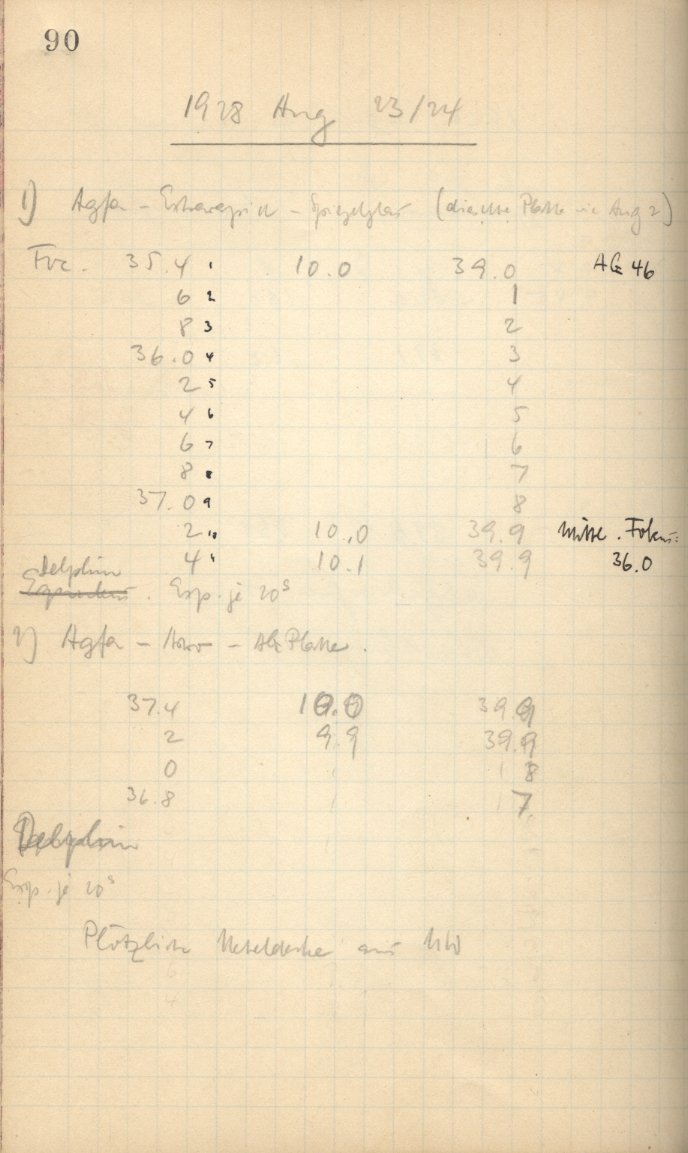 90
1928 Aug 23/24
1) Agfa - Extrarapid - Spiegelglas (dieselbe Platte wie Aug 2)
Foc. 35.4 1 10.0 39.0 AG 46
6 2 1
8 3 2
36.0 4 3
2 5 4
4 6 5
6 7 6
8 8 7
37.0 9 8
2 10 10.0 39.9 Mittl. Fokus:
4 11 10.1 39.9 36.0
Delphin
Equuleus. Exp. je 20s
2) Agfa - Astro - AG Platte.
37.4 10.0 39.9
2 9.9 39.9
0 8
36.8 7
Delphin
Exp. je 20s
Plötzliche Nebeldecke aus NW